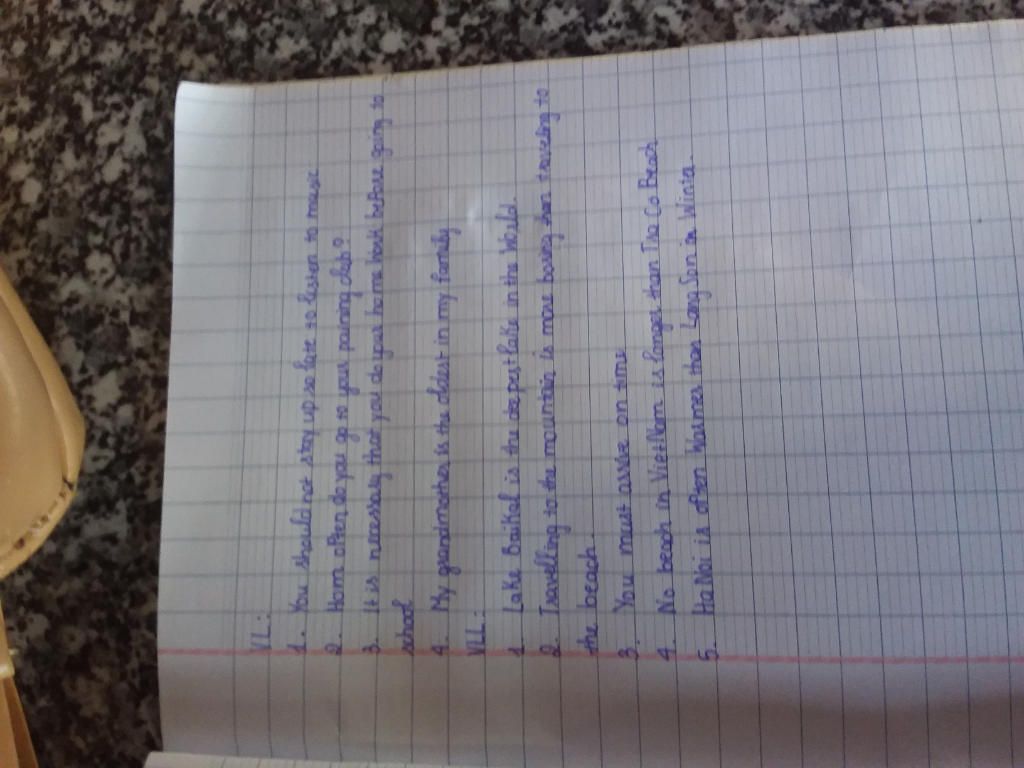 VI:
1. You should not stay up so late to listen to music
2. How often do you go to your paining club?
3. It is necessary that you do your home work before going to
school
4. My grandmother is the oldest in my family
VII:
1. Lake Baikal is the deepest lake in the World.
2. Travelling to the mountain is more boring than traveling to
the beach.
3. You must arrive on time
4. No beach in Viet Nam is longer than Tra Co Beach
5. Ha Noi is often warmer than Lang Son in Winter.